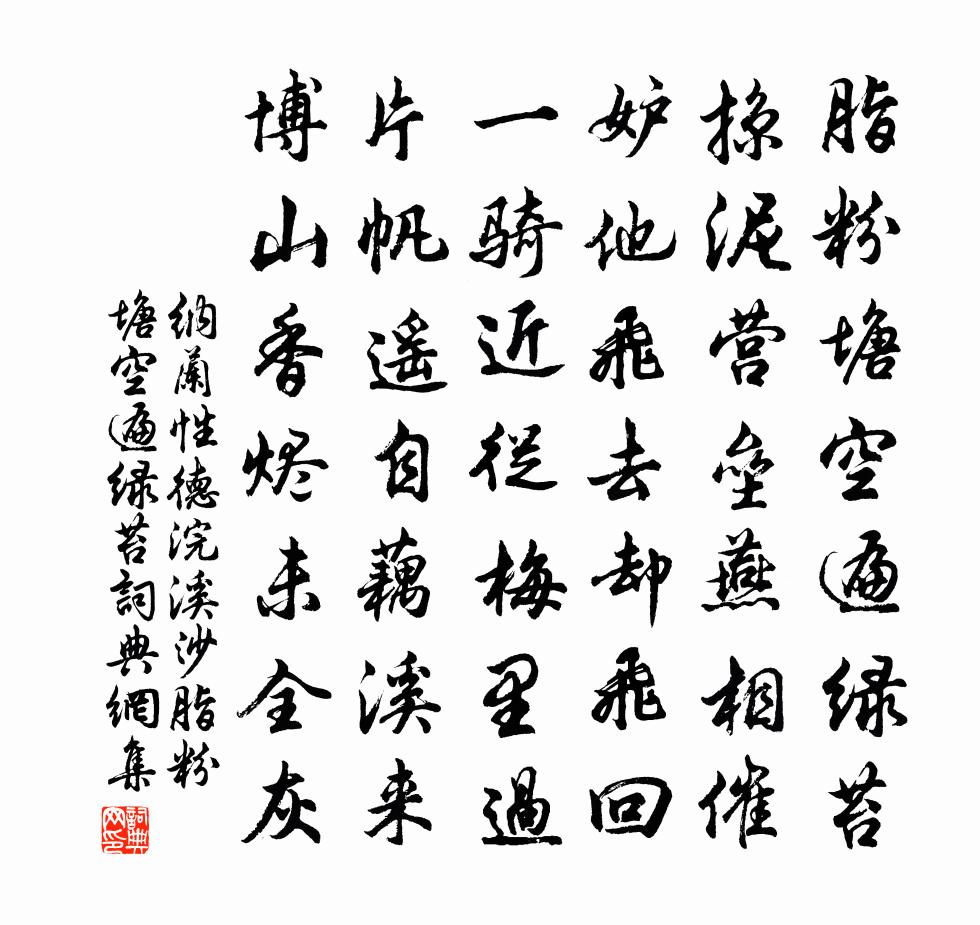 脂粉塘空遍绿苔
掠泥营垒燕相催
妒他飞去却飞回
一骑近从梅里过
片帆遥自藕溪来
博山香烬未全灰
纳兰性德浣溪沙脂粉
塘空遍绿苔詞典網集
詞典网印